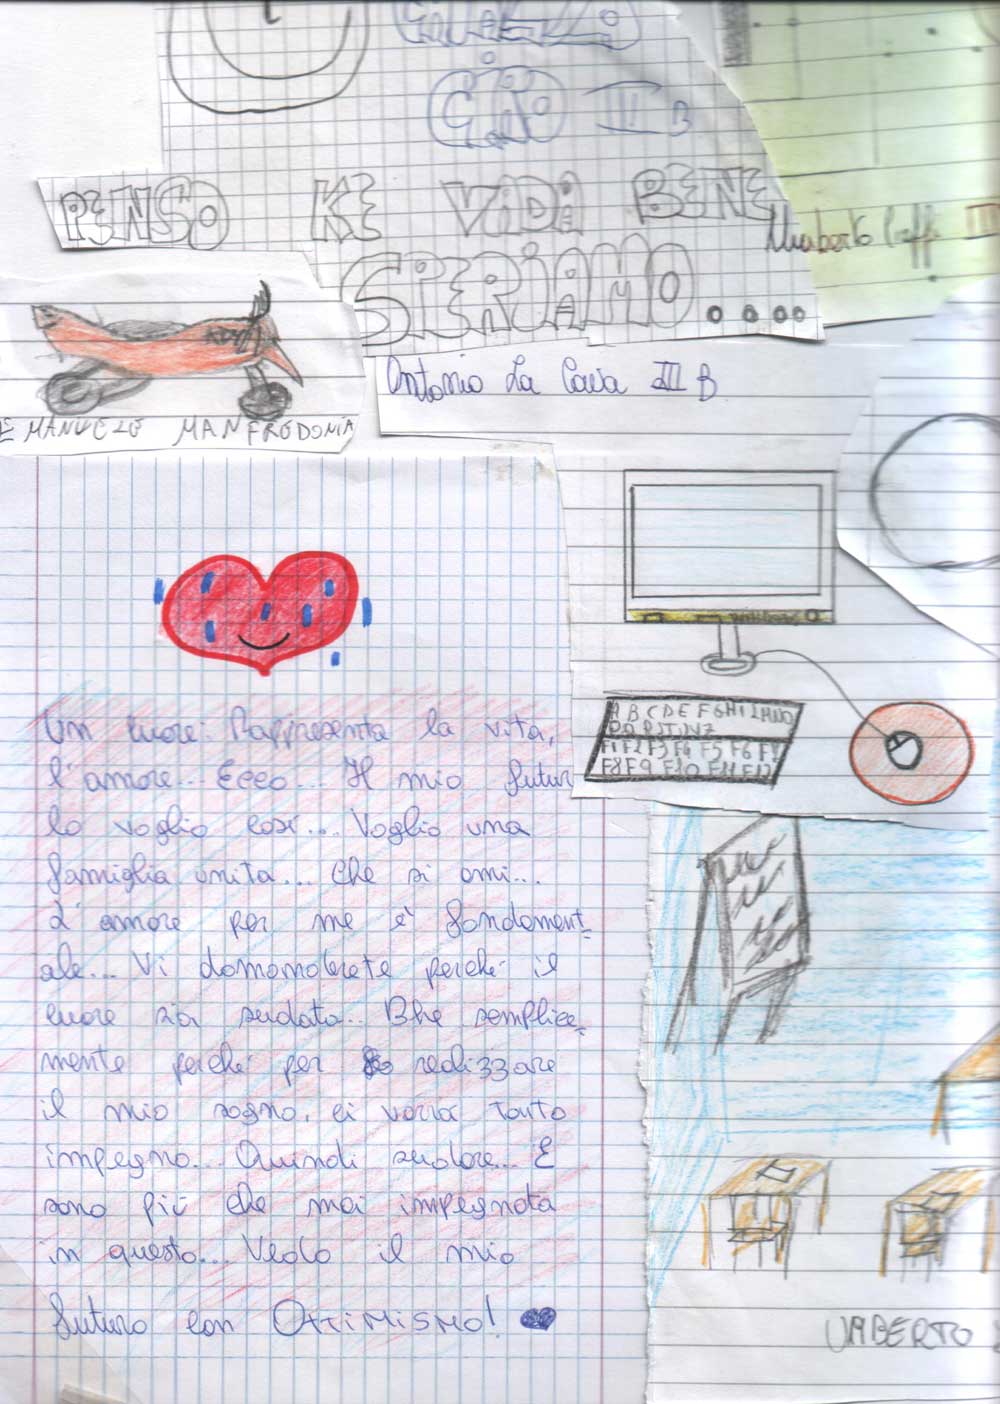 CIAO III B
PENSO KE VADA BENE
SPERIAMO....
Umberto III
Antonio La Cava III B
EMANUELE MANFREDONIA
Un cuore: Rappresenta la vita,
l'amore... Ecco... Il mio futur
lo voglio così... Voglio una
famiglia unita... Che si ami...
L'amore per me è fondament-
ale... Vi domanderete perché il
cuore sia sudato.. Bhe semplice-
mente perché per realizzare
il mio sogno, ci vorrà tanto
impegno... Quindi sudore... E
sono più che mai impegnata
in questo... Vedo il mio
futuro con OTTIMISMO!
A B C D E F G H I L M N O
P Q R S T U V Z
F1 F2 F3 F4 F5 F6 F7
F8 F9 F10 F11 F12
UMBERTO